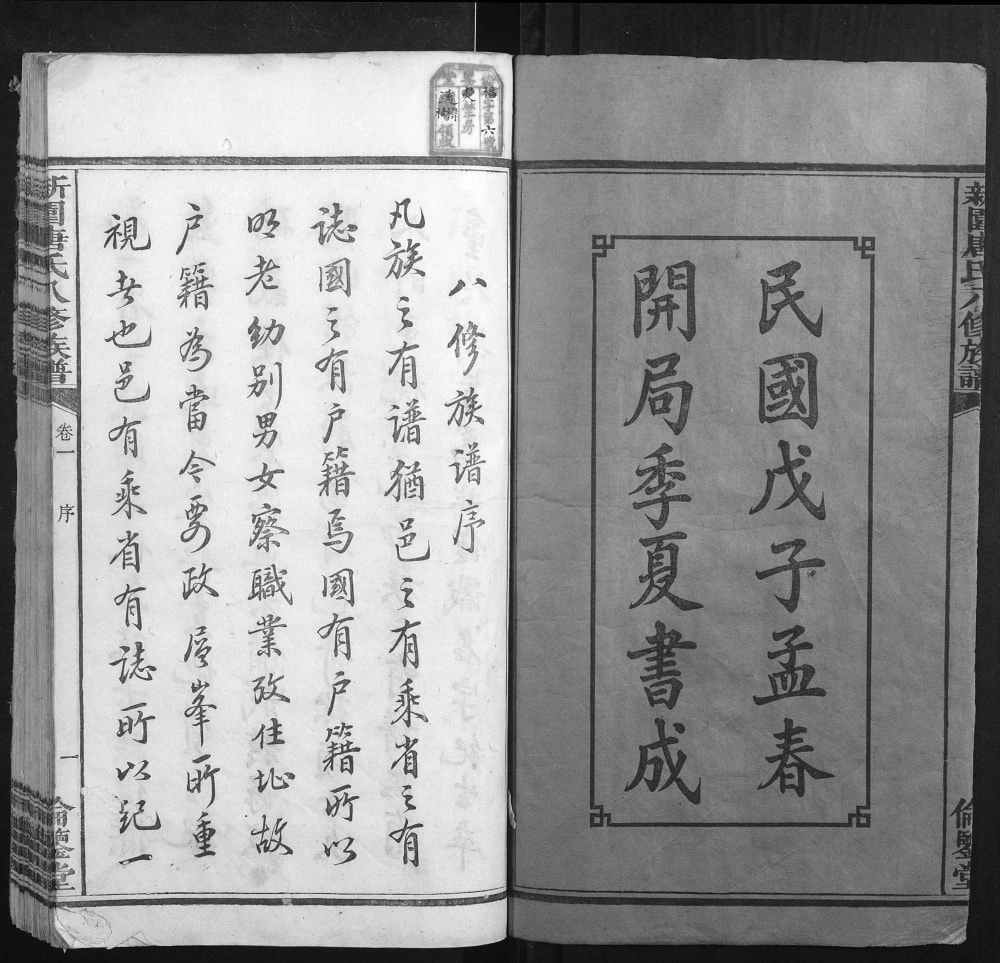 新圍唐氏八修族譜
倫鑒堂
民國戊子孟春
開局季夏書成
福字第六號
領收
八修族譜序
凡族之有譜猶邑之有乘省之有
誌國之有户籍焉國有户籍所以
明老幼别男女察職業攷住址故
户籍為當令要政層峯所重
視者也邑有乘省有誌所以記一
新圍唐氏八修族譜
卷一
序
一
倫鑒堂